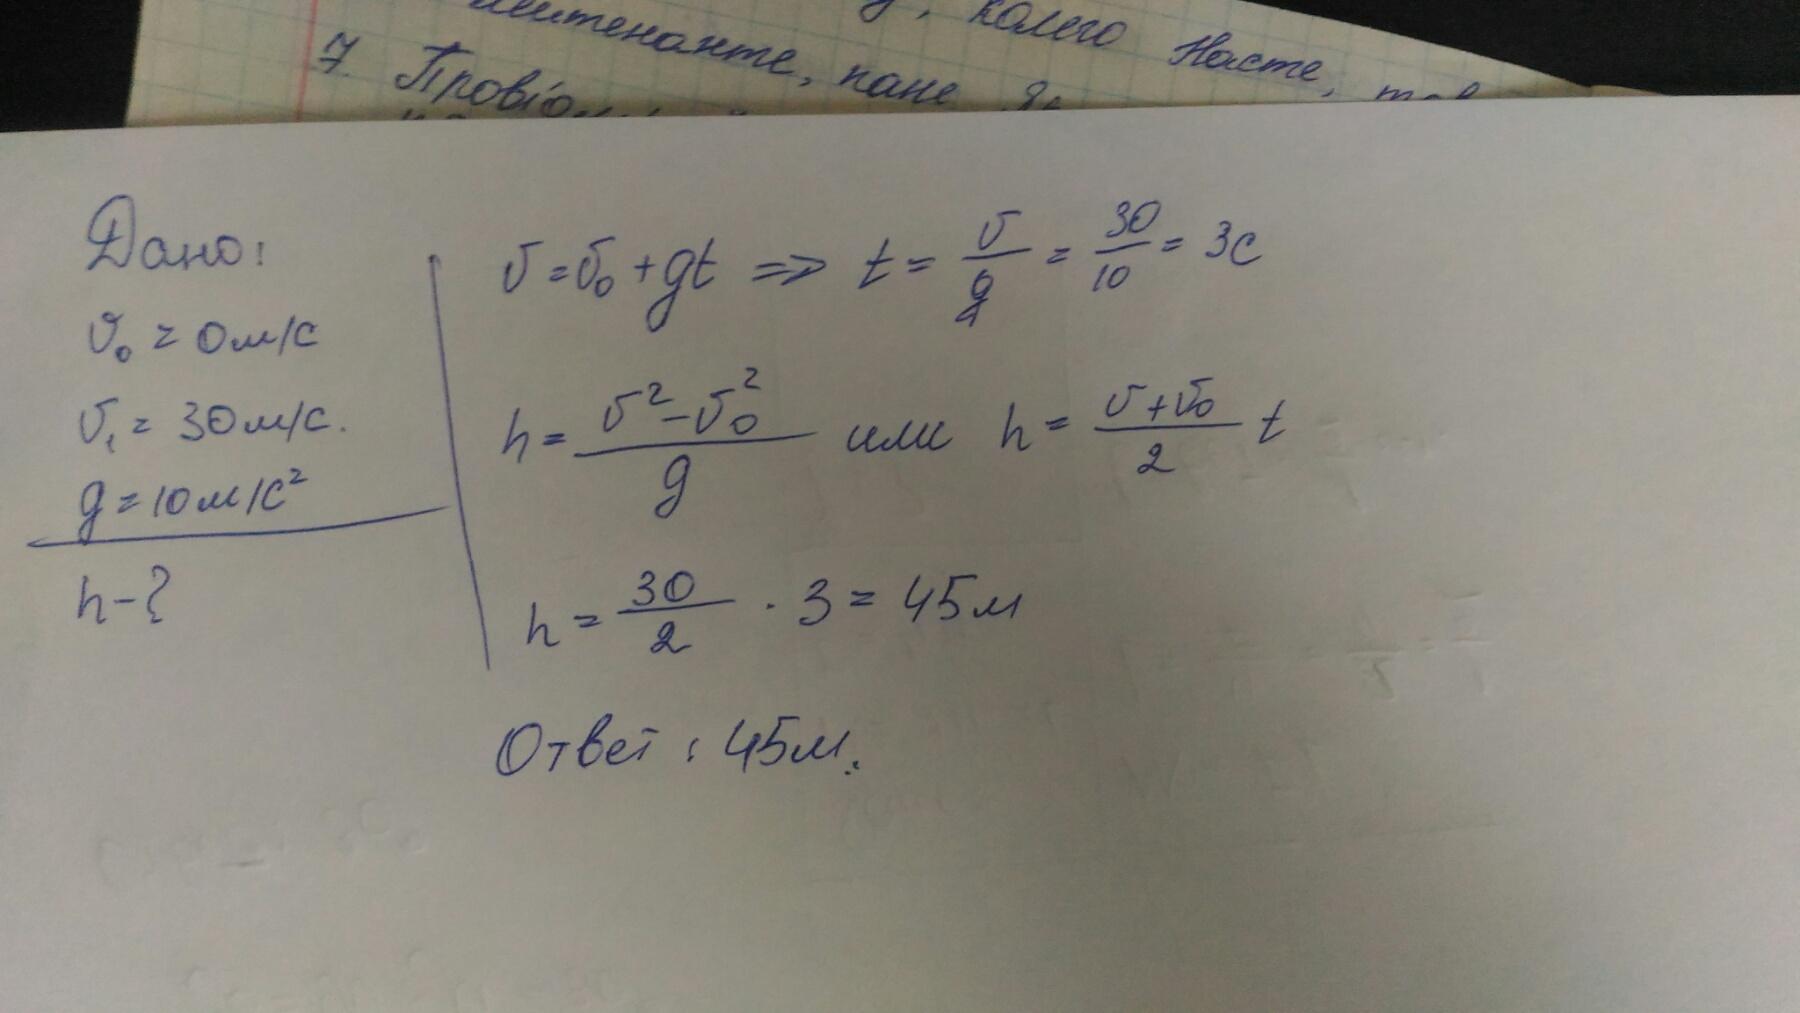 колего Насте,
лейтенанте, пане
7.
Дано:
v₀ = 0 м/с
v₁ = 30 м/с.
g = 10 м/с²
h - ?
v = v₀ + gt => t = v/g = 30/10 = 3с
h = (v² - v₀²)/g или h = (v + v₀)/2 t
h = 30/2 · 3 = 45м
Ответ: 45м.